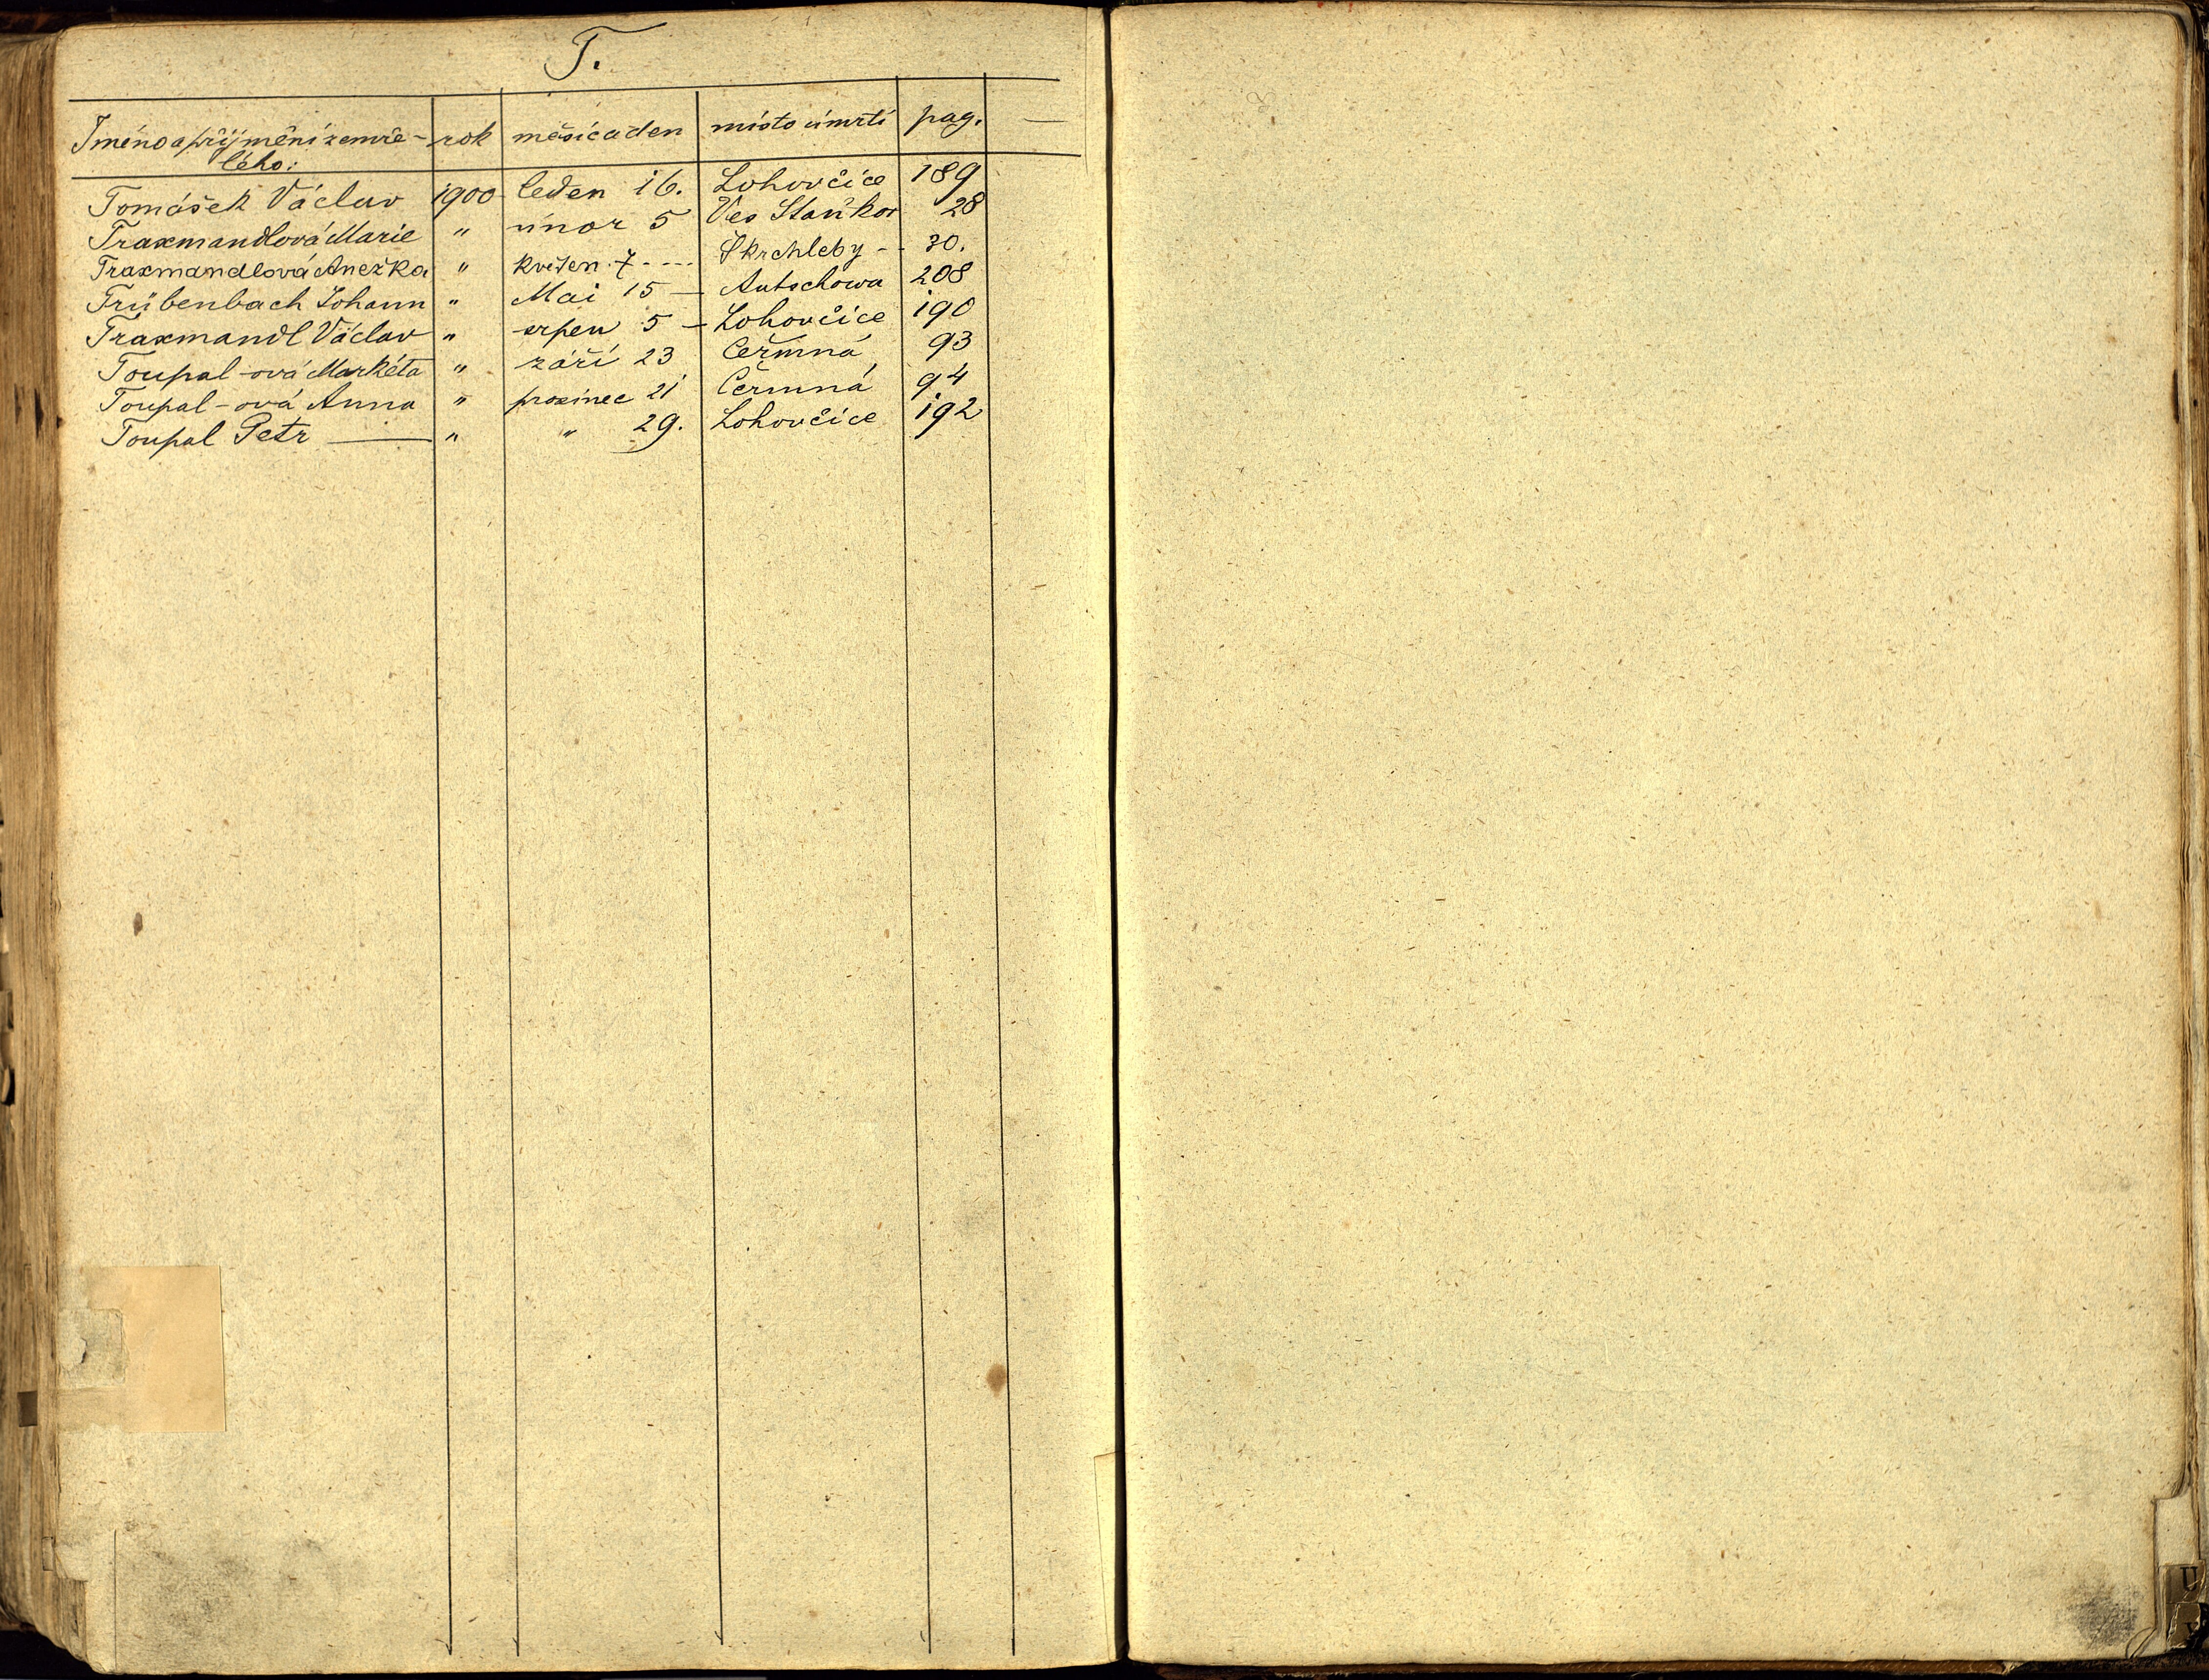 T.
Jméno a přijmění zemře- rok měsíc a den místo úmrtí pag. —
lého:
Tomášek Václav 1900 leden 16. Lohovčice 189
Traxmandlová Marie " únor 5 Ves Staňkov 28
Traxmandlová Anežka " květen 7 ---- Škrchleby -- 30.
Trübenbach Johann " Mai 15 — Autschowa 208
Traxmandl Václav " srpen 5 — Lohovčice 190
Toupal-ová Markéta " září 23 Čeřmná 93
Toupal-ová Anna " prosinec 21 Čermná 94
Toupal Petr — " " 29. Lohovčice 192
U